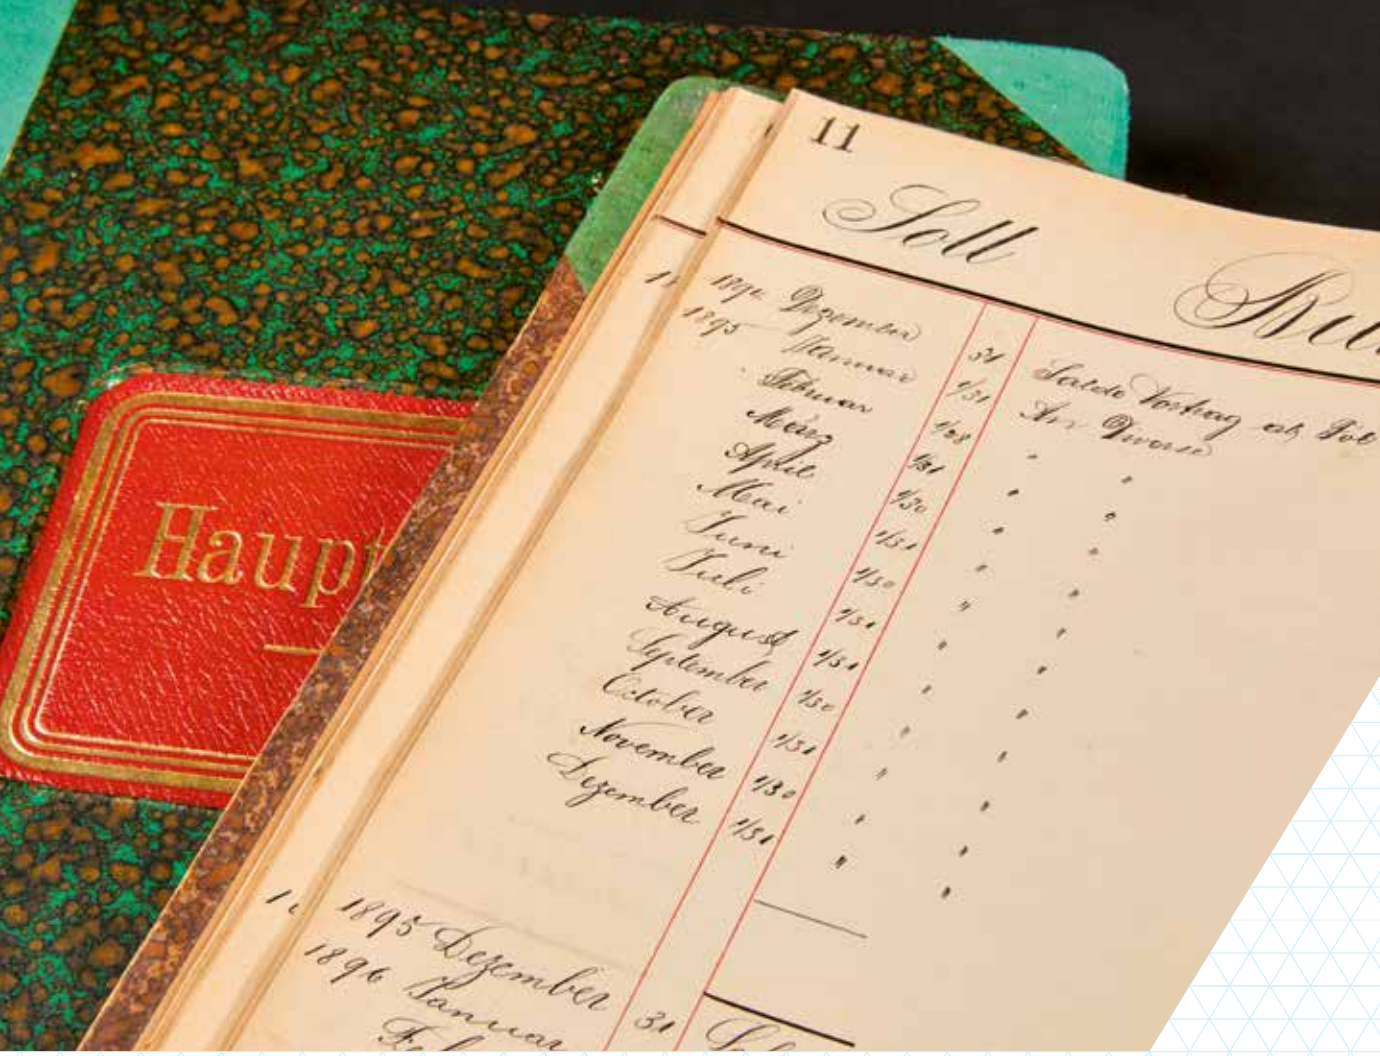 11
Soll
1894 Dezember 31 Saldo Vortrag
1895 Januar 1/31 An Diverse
Februar 1/28 " "
März 1/31 " "
April 1/30 " "
Mai 1/31 " "
Juni 1/30 " "
Juli 1/31 " "
August 1/31 " "
September 1/30 " "
October 1/31 " "
November 1/30 " "
Dezember 1/31 " "
1895 Dezember 31
1896 Januar
Haupt